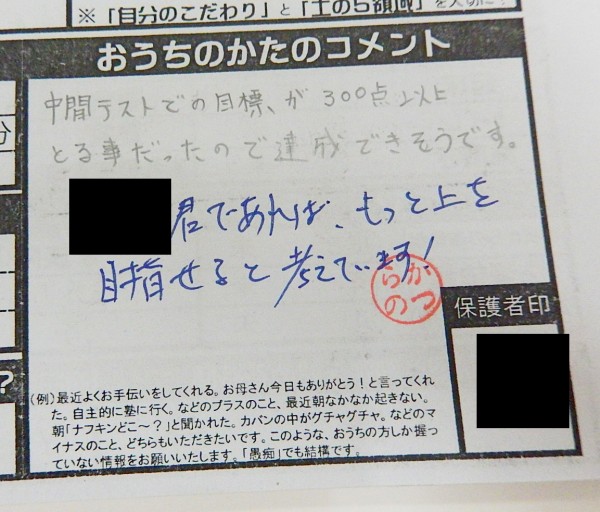 ※「自分のこだわり」と「土の5領域」を大切に
おうちのかたのコメント
中間テストでの目標、が300点以上
とる事だったので達成できそうです。
君であれば、もっと上を
目指せると考えています!
保護者印
(例)最近よくお手伝いをしてくれる。お母さん今日もありがとう!と言ってくれ
た。自主的に塾に行く。などのプラスのこと、最近朝なかなか起きない。
朝「ナフキンどこ~?」と聞かれた。カバンの中がグチャグチャ。などのマ
イナスのこと、どちらもいただきたいです。このような、おうちの方しか握っ
ていない情報をお願いいたします。「愚痴」でも結構です。